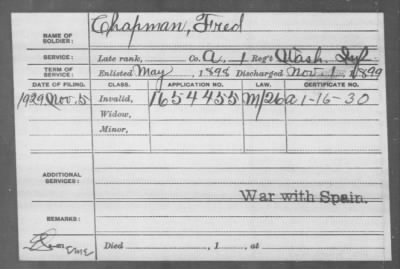 NAME OF SOLDIER: Chapman, Fred
SERVICE: Late rank, Co. A, 1 Reg't Wash. Inf.
TERM OF SERVICE: Enlisted May, 1898 Discharged Nov. 1, 1899
DATE OF FILING. CLASS. APPLICATION NO. LAW. CERTIFICATE NO.
1929 Nov. 5 Invalid, 1654455 M/26 a 1-16-30
Widow,
Minor,
ADDITIONAL SERVICES:
War with Spain.
REMARKS:
Died , 1 , at